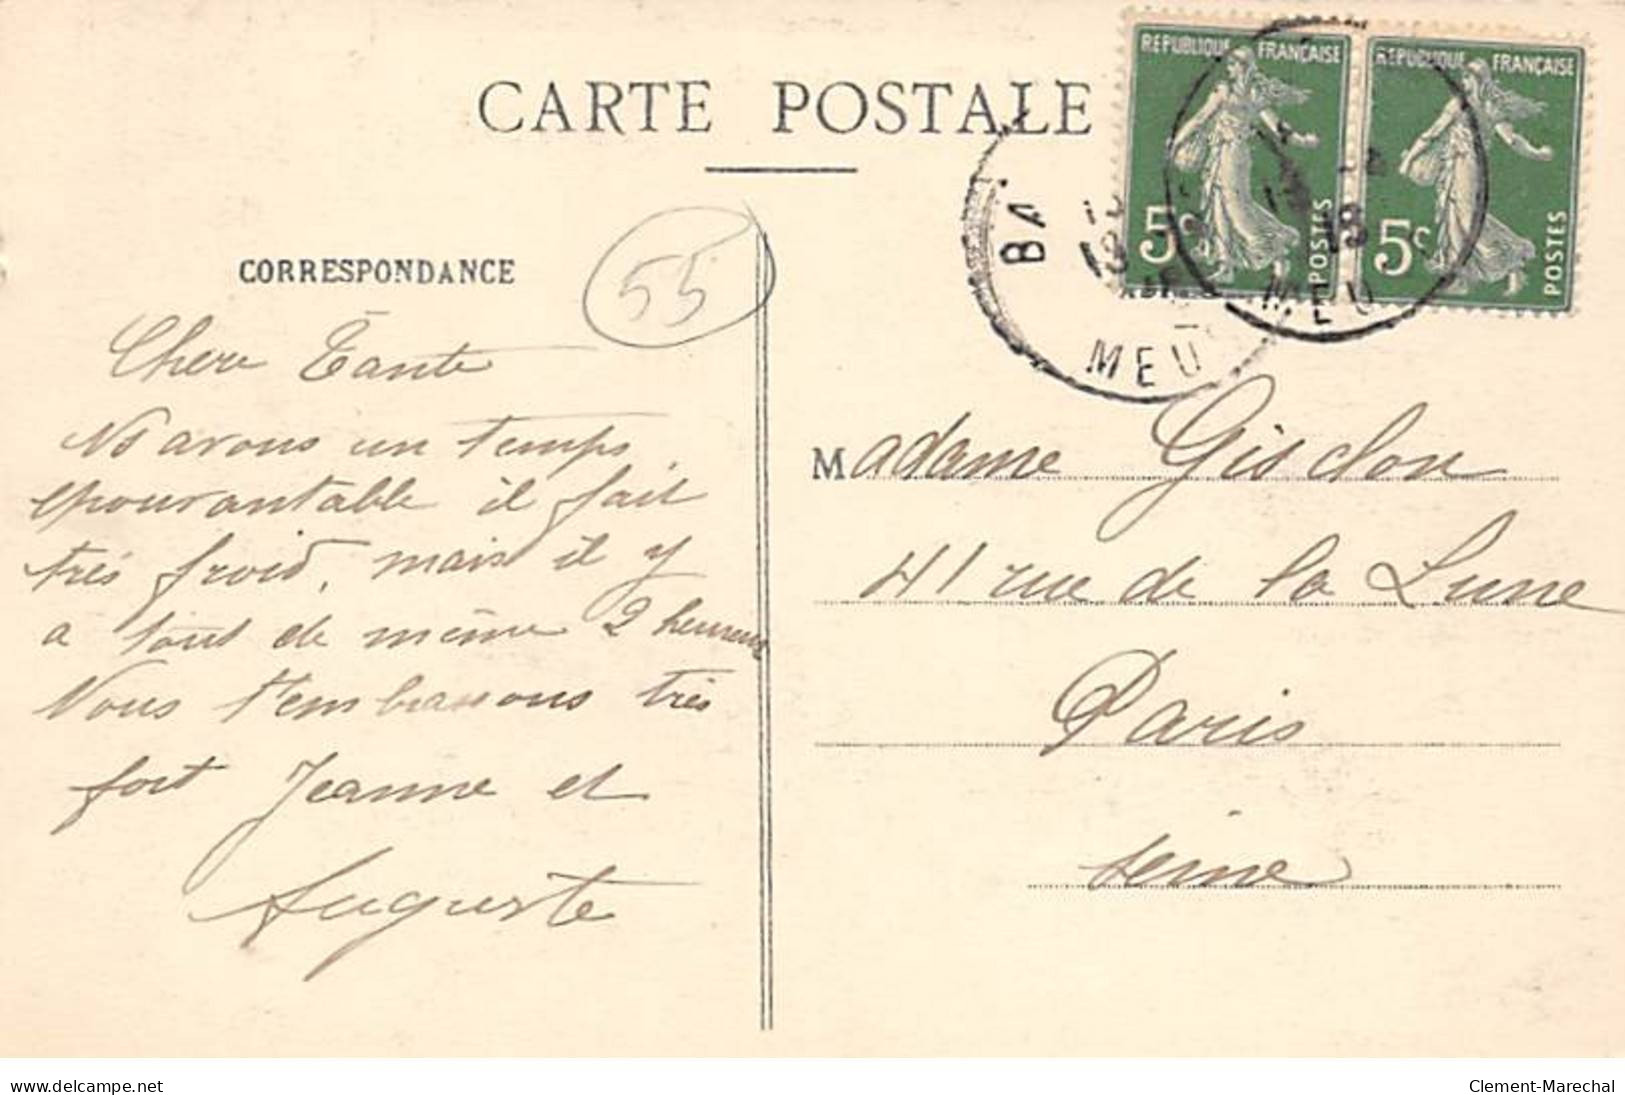 CARTE POSTALE
CORRESPONDANCE
55
Chere Tante
Ns avons un temps
epouvantable il fait
très froid, mais il y
a tout de même 2 heureux
Nous t'embrassons très
fort Jeanne et
Auguste
RÉPUBLIQUE FRANÇAISE
5c POSTES
RÉPUBLIQUE FRANÇAISE
5c POSTES
BA
MEU
MEU
Madame Gisclon
41 rue de la Lune
Paris
Seine
www.delcampe.net
Clement-Marechal